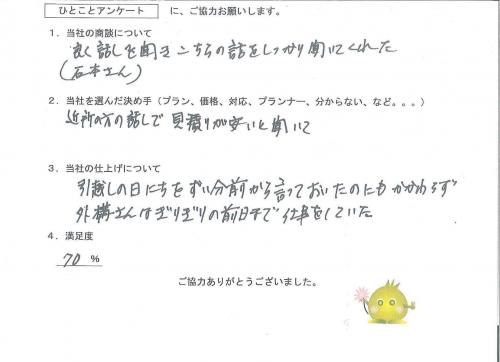 ひとことアンケート に、ご協力お願いします。
1．当社の商談について
良く話しを聞きこちらの話をしっかり聞いてくれた
(石本さん)
2．当社を選んだ決め手（プラン、価格、対応、プランナー、分からない、など。。。）
近所の方の話しで見積りが安いと聞いて
3．当社の仕上げについて
引越しの日にちをずい分前から言っておいたのにもかかわらず
外構さんはぎりぎりの前日まで仕事をしていた
4．満足度
70 %
ご協力ありがとうございました。